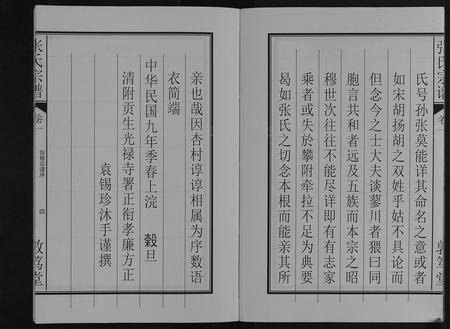 张氏宗谱
卷一
敦笃堂
氏号孙张莫能详其命名之意或者
如宋胡扬胡之双姓乎姑不具论而
但念今之士大夫谈蓼川者猥曰同
胞言共和者远及五族而本宗之昭
穆世次往往不能尽详即有有志家
乘者或失於攀附牵拉不足为典要
曷如张氏之切念本根而能亲其所
亲也哉因杏村谆谆相属为序数语
衣简端
中华民国九年季春上浣 穀旦
清附贡生光禄寺署正衔孝廉方正
袁锡珍沐手谨撰
张氏宗谱
卷一
四
敦笃堂